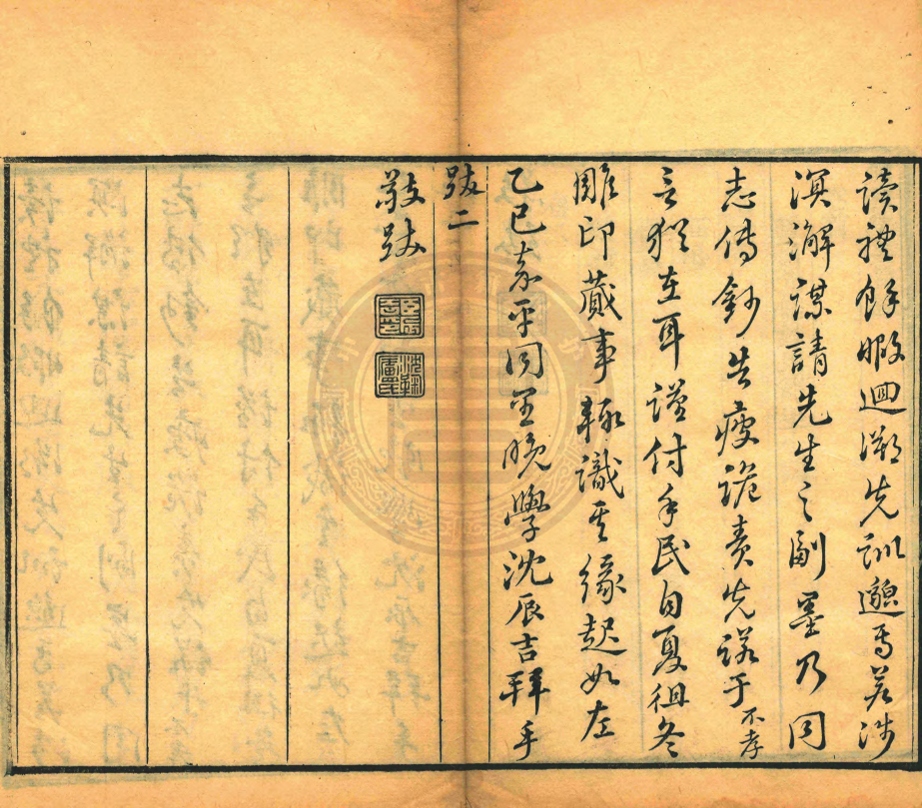 讀禮餘暇迴溯先訓邈焉若涉
溟澥謀請先生之副墨乃同
志傳鈔告瘦詭責先諾于不孝
言猶在耳謹付手民自夏徂冬
雕印蕆事輒識其緣起如左
乙巳嘉平同里晚學沈辰吉拜手
跋二
敬跋